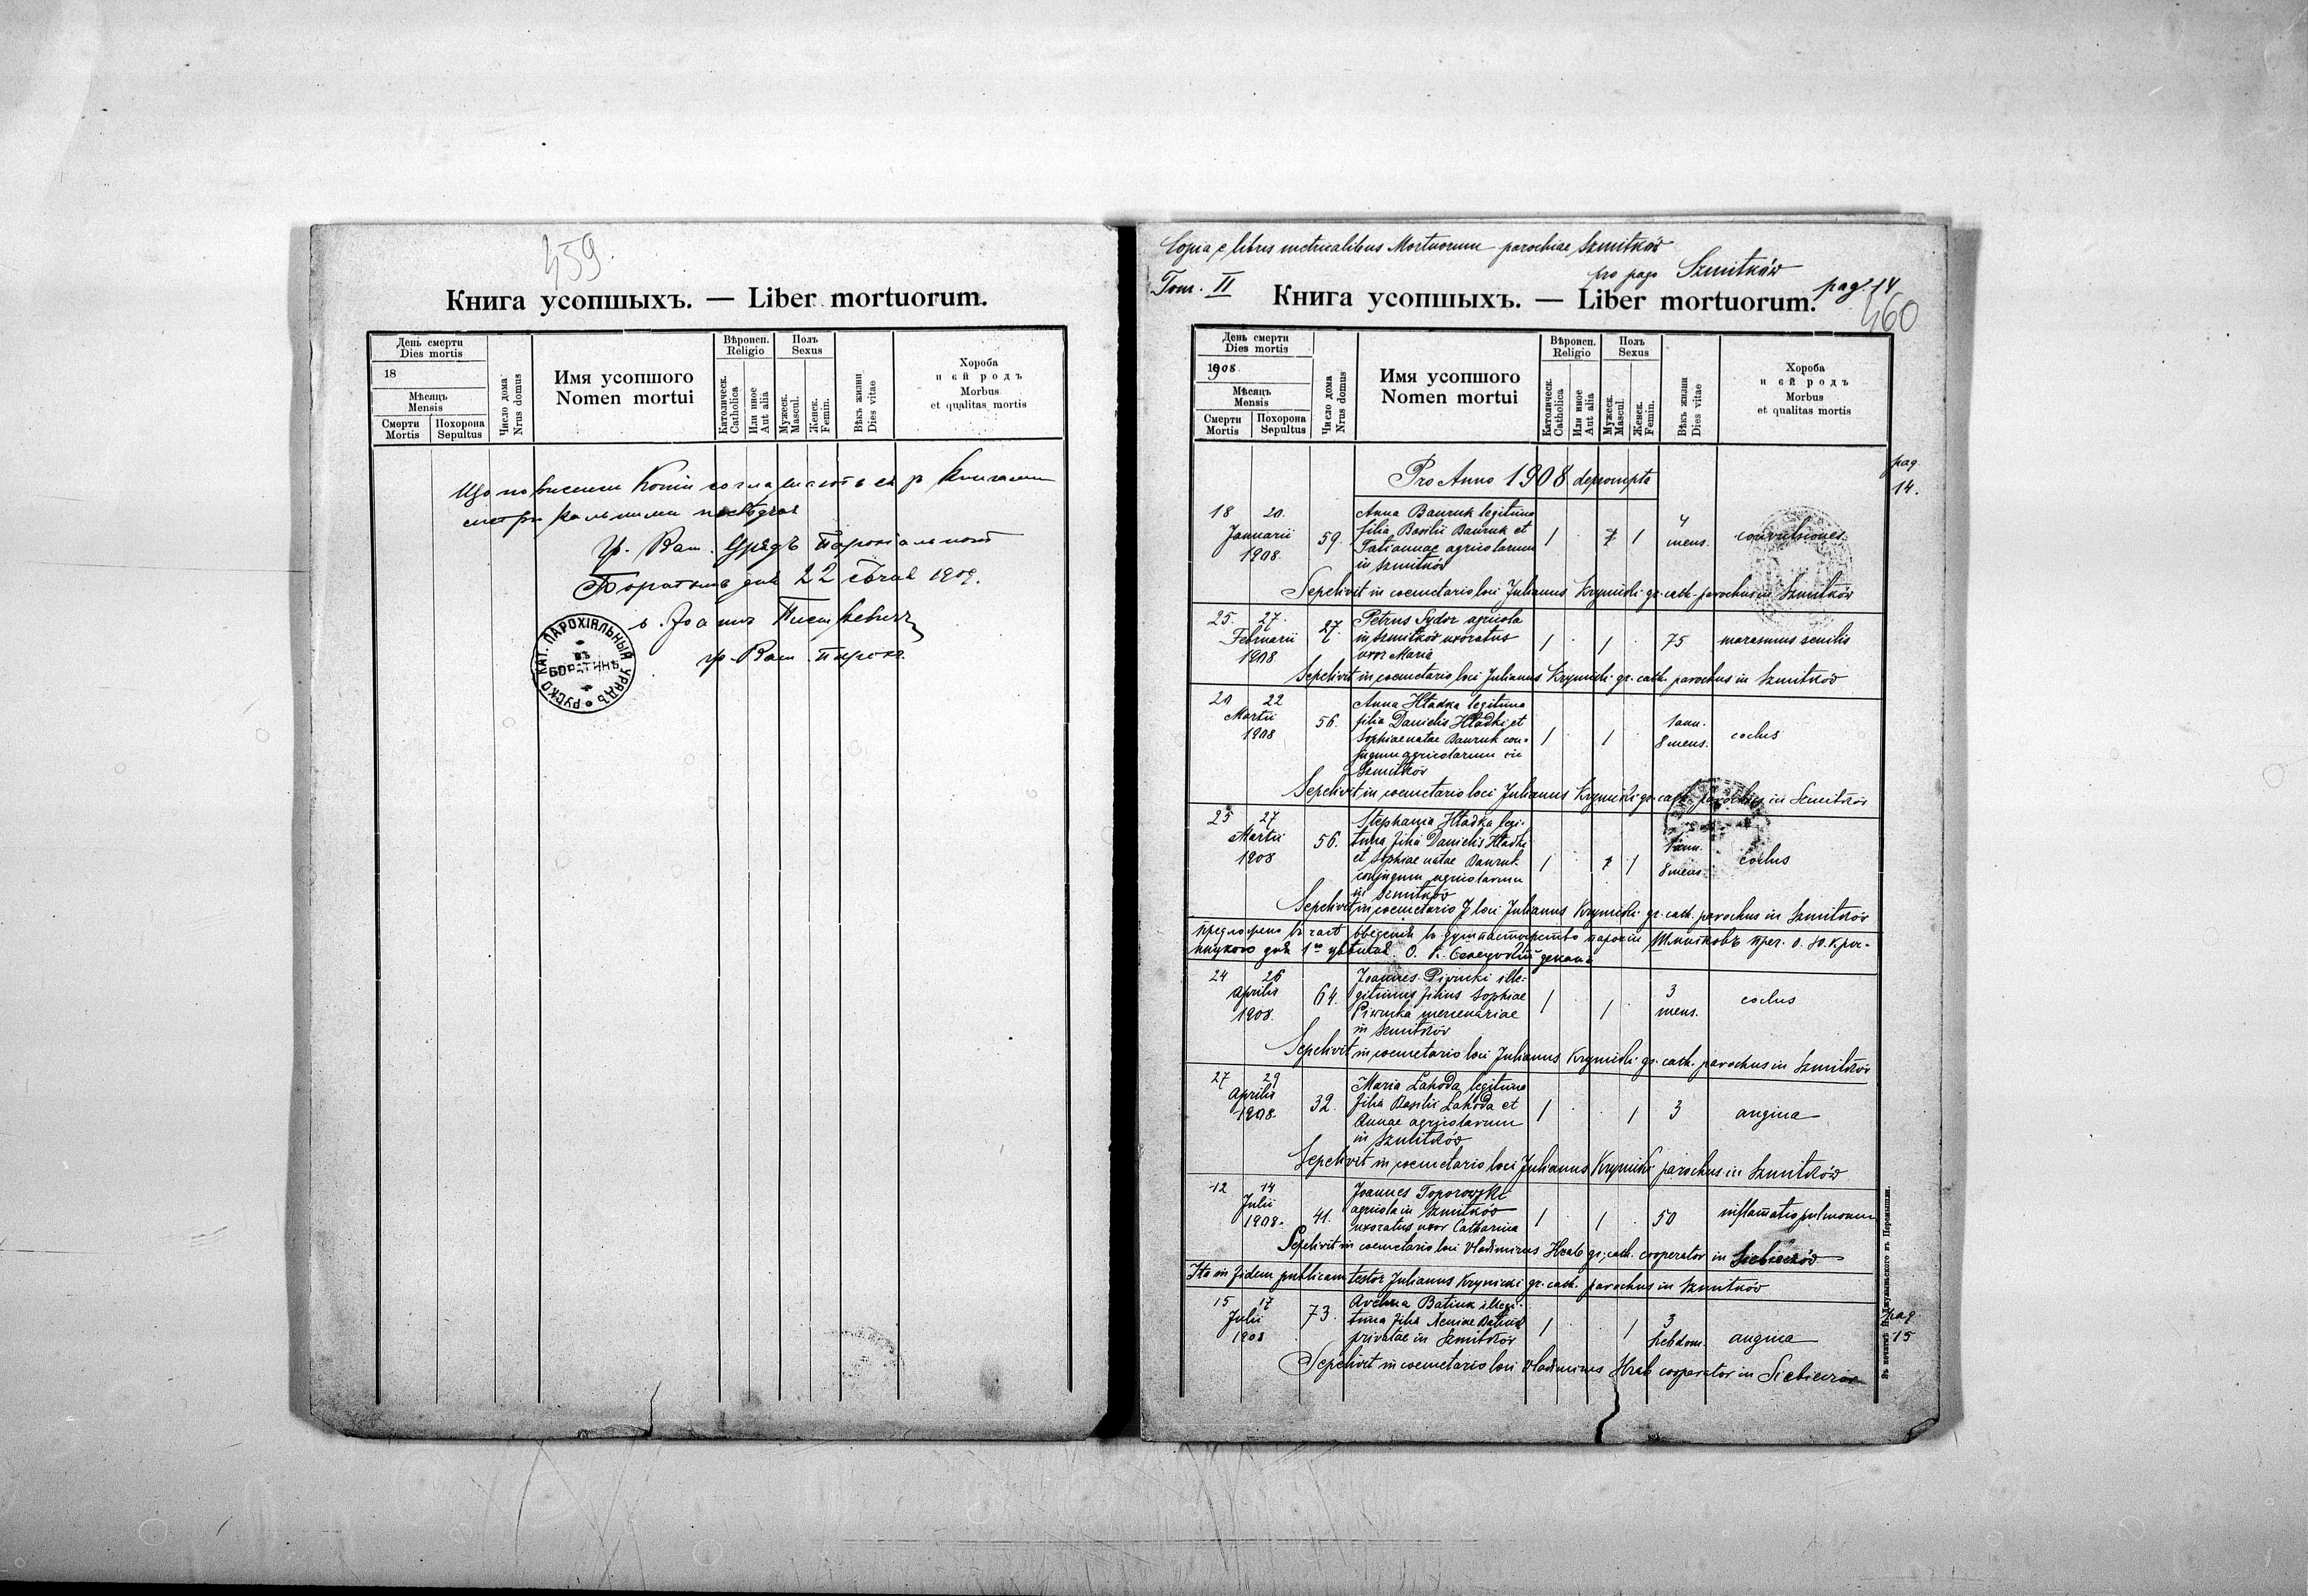 459.
Книга усопшыхъ. — Liber mortuorum.
День смерти
Dies mortis
18
Мѣсяць
Mensis
Смерти
Mortis
Похорона
Sepultus
Число дома
Nrus domus
Имя усопшого
Nomen mortui
Вѣроисп.
Religio
Католическ.
Catholica
Или иное
Aut alia
Полъ
Sexus
Мужеск.
Mascul.
Женск.
Femin.
Вѣкъ жизни
Dies vitae
Хороба
и єй родъ
Morbus
et qualitas mortis
гр. Кат. Урядъ Парохіальный
дня 22 Січня 1909.
гр. Кат. парох.
РУСКО КАТ. ПАРОХІЯЛЬНЫЙ УРЯДЪ
въ
БОРАТИНѢ
Copia e libris metricalibus Mortuorum parochiae Szmitków
Tom. II
pro pago Szmitków
pag. 14
460
Книга усопшыхъ. — Liber mortuorum.
День смерти
Dies mortis
1908
Мѣсяць
Mensis
Смерти
Mortis
Похорона
Sepultus
Число дома
Nrus domus
Имя усопшого
Nomen mortui
Вѣроисп.
Religio
Католическ.
Catholica
Или иное
Aut alia
Полъ
Sexus
Мужеск.
Mascul.
Женск.
Femin.
Вѣкъ жизни
Dies vitae
Хороба
и єй родъ
Morbus
et qualitas mortis
Pro Anno 1908 deprompta
pag.
14.
18 20. Anna Bauruk legitima
Januarii 59. filia Basilii Bauruk et 1 1 4 mens. convulsiones
1908. Tatiannae agricolarum
in Szmitków
Sepelivit in coemetario loci Julianus Krynicki gr. cath. parochus in Szmitków
25. 27. Petrus Sydor agricola
Februarii 27. in Szmitków uxoratus 1 1 75 marasmus senilis
1908 uxor Maria
Sepelivit in coemetario loci Julianus Krynicki gr. cath. parochus in Szmitków
20 22 Anna Hładka legitima
Martii 56. filia Danielis Hładki et 1 ann.
1908 Sophiae natae Bauruk con- 1 1 8 mens.
jugum agricolarum in
Szmitków
Sepelivit in coemetario loci Julianus Krynicki gr. cath. parochus in Szmitków
25 27 Stephania Hładka legi-
Martii 56. tima filia Danielis Hładki 1 ann.
1908 et Sophiae natae Bauruk 1 1 8 mens.
conjugum agricolarum
in Szmitków
Sepelivit in coemetario loci Julianus Krynicki gr. cath. parochus in Szmitków
24 26 Joannes Piwnicki ille-
Aprilis 64. gitimus filius Sophiae 1 1 3 mens.
1908. mercenariae
in Szmitków
Sepelivit in coemetario loci Julianus Krynicki gr. cath. parochus in Szmitków
27 29 Maria Lahoda legitima
Aprilis 32. filia Basilii Lahoda et 1 1 3 angina
1908. Annae agricolarum
in Szmitków
Sepelivit in coemetario loci Julianus Krynicki parochus in Szmitków
12 14 Joannes Toporowski
Julii 41. agricola in Szmitków 1 1 50 inflamatio pulmonum
1908. uxoratus uxor Catharina
Sepelivit in coemetario loci Vladimirus Hrab gr. cath. cooperator in Siebieczów
Ita in fidem publicam testor Julianus Krynicki gr. cath. parochus in Szmitków
15 17 73. Batiuk illegi-
Julii tima filia Xeniae Batiuk 1 1 3 hebdom. angina
1908 privatae in Szmitków
Sepelivit in coemetario loci Vladimirus Hrab cooperator in Siebieczów
pag.
15